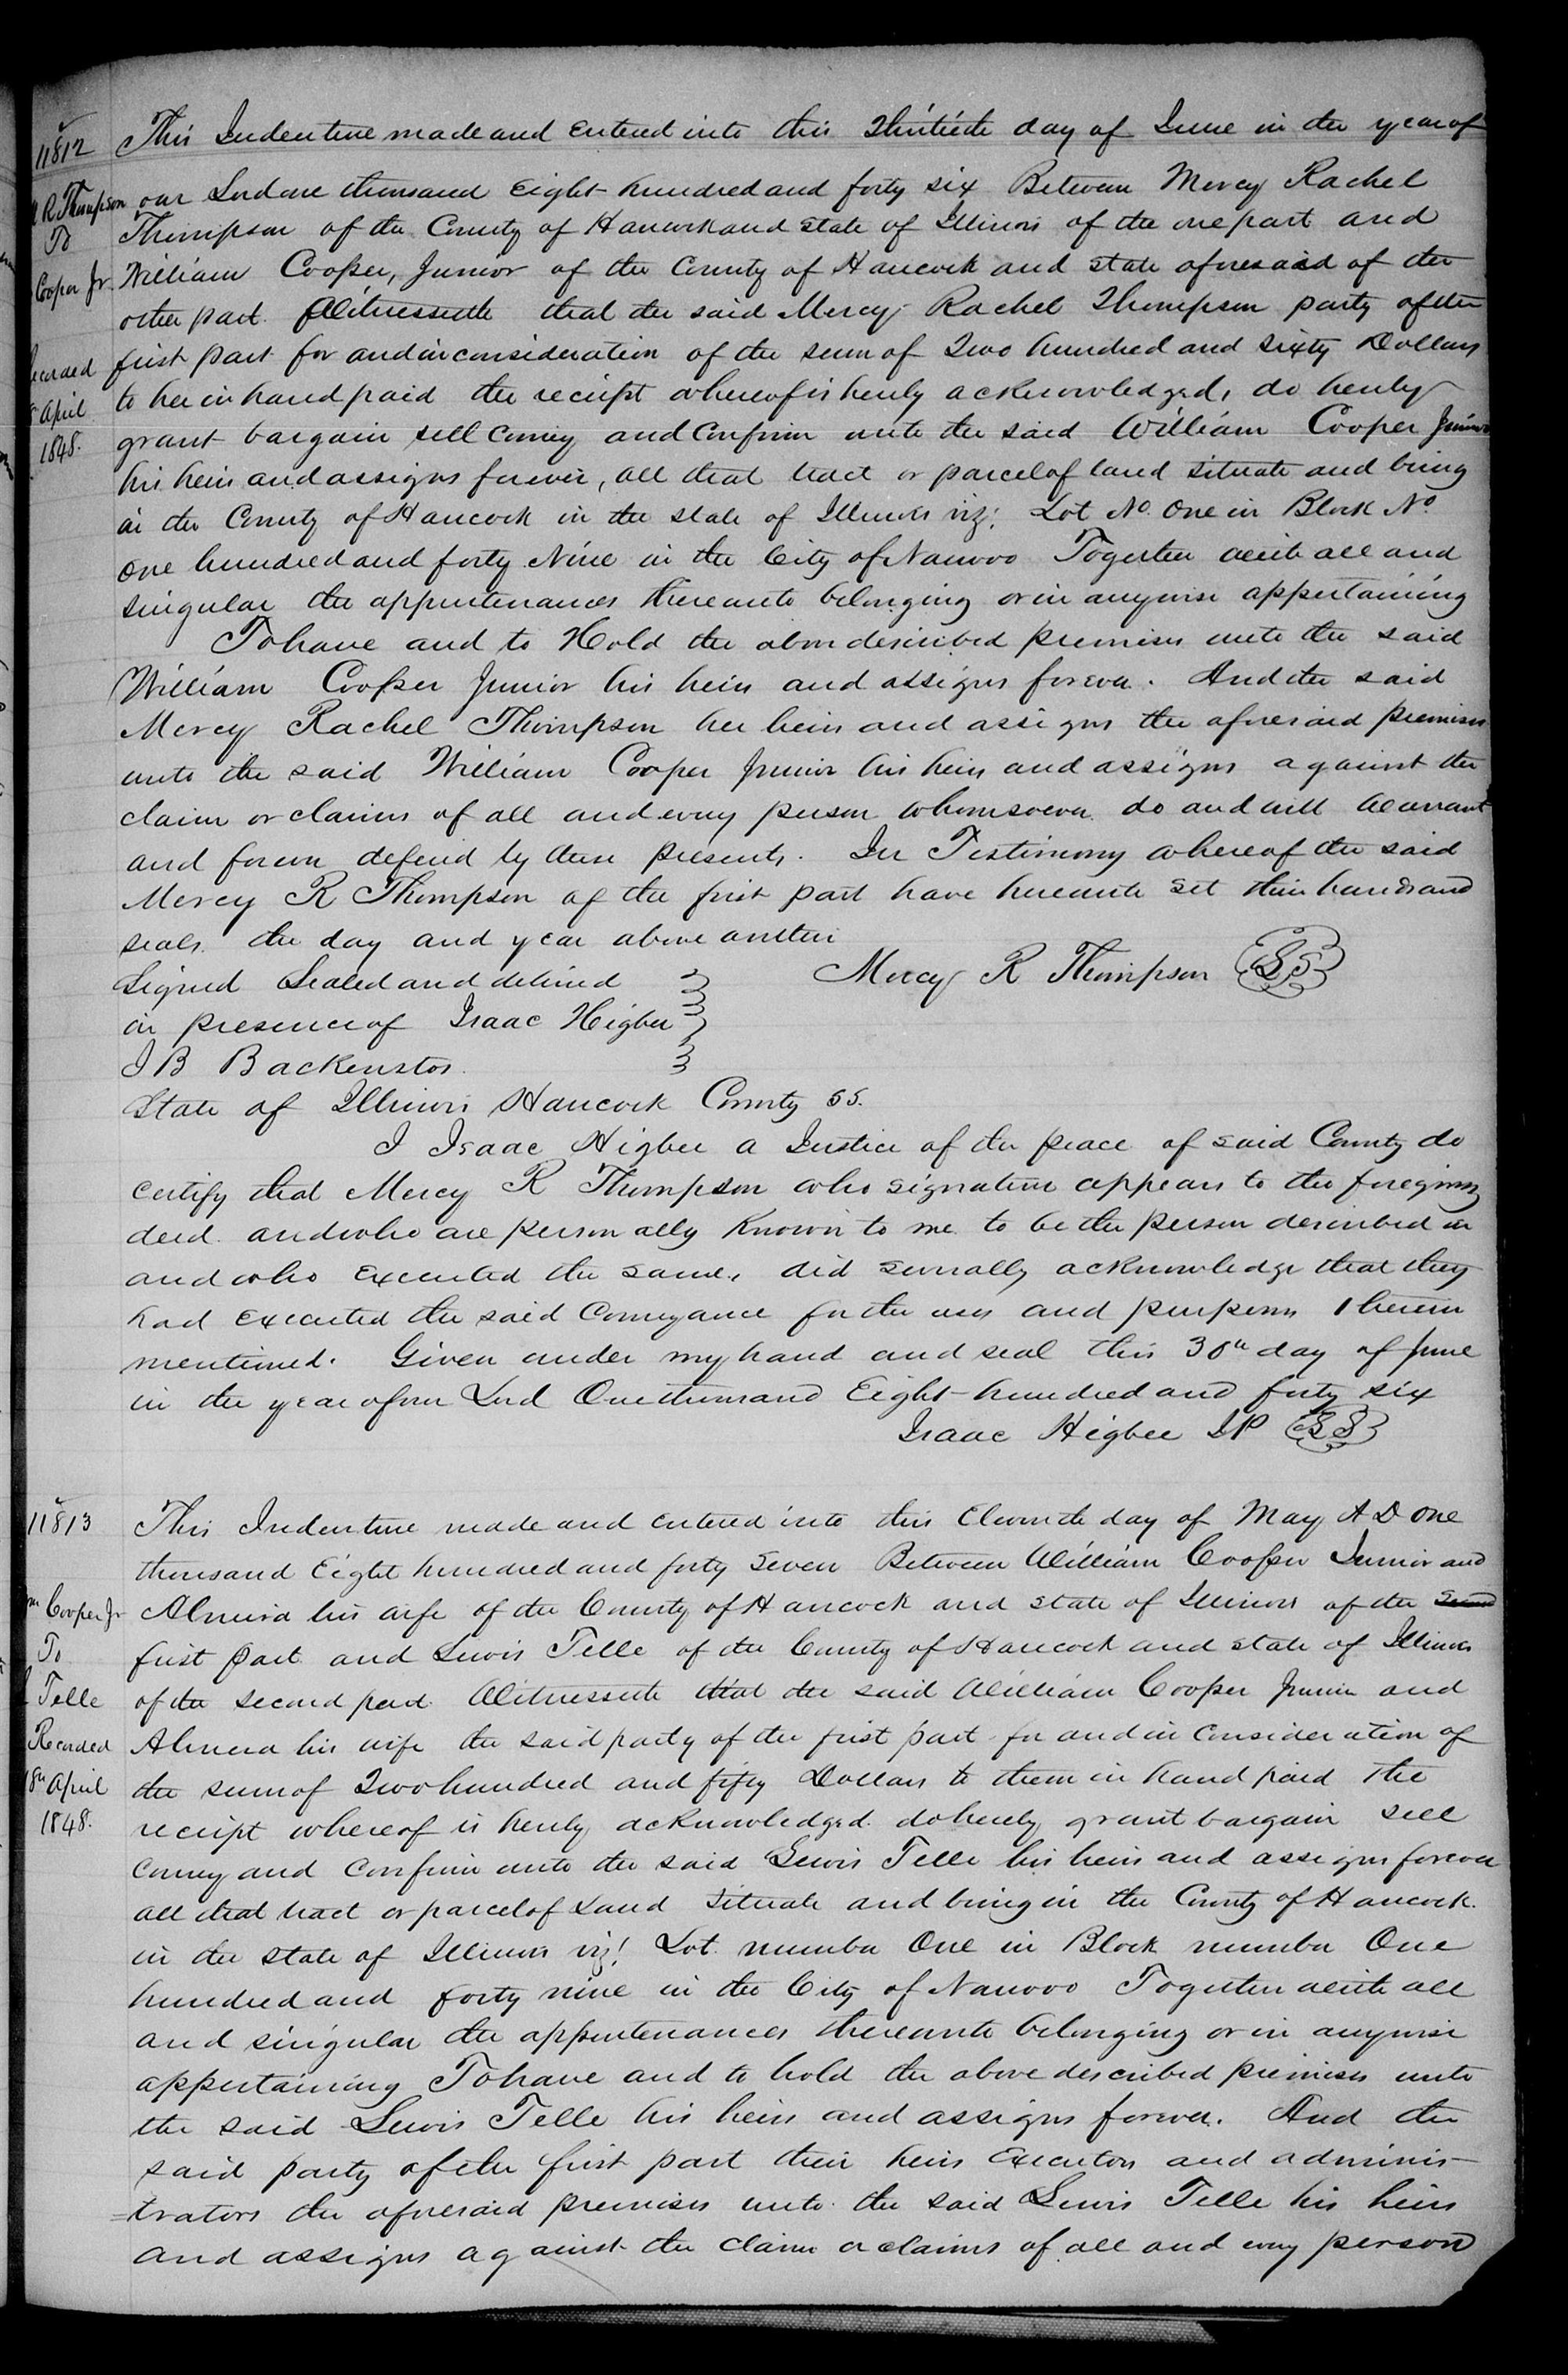 11812
This Indenture made and entered into this Thirtieth day of June in the year of
R Thompson
To
Cooper Jr
our Lord one thousand Eight hundred and forty six Between Mercy Rachel
Thompson of the County of Hancock and state of Illinois of the one part and
William Cooper, Junior of the County of Hancock and state aforesaid of the
other part Witnesseth that the said Mercy Rachel Thompson party of the
first part for and in consideration of the sum of Two hundred and sixty Dollars
to her in hand paid the receipt whereof is hereby acknowledged, do hereby
April
1848.
grant bargain sell convey and confirm unto the said William Cooper Junior
his heirs and assigns forever, all that tract or parcel of land situate and being
in the County of Hancock in the state of Illinois viz: Lot No. One in Block No
One hundred and forty Nine in the City of Nauvoo Together with all and
singular the appurtenances thereunto belonging or in anywise appertaining
To have and to Hold the above described premises unto the said
William Cooper Junior his heirs and assigns forever. And the said
Mercy Rachel Thompson her heirs and assigns the aforesaid premises
unto the said William Cooper Junior his heirs and assigns against the
claim or claims of all and every person whomsoever do and will Warrant
and forever defend by these presents. In Testimony whereof the said
Mercy R Thompson of the first part have hereunto set their hands and
seals the day and year above written
Signed Sealed and delivered
Mercy R Thompson LS
in presence of Isaac Higbee
J B Backenstos.
State of Illinois Hancock County SS.
I Isaac Higbee a Justice of the peace of said County do
certify that Mercy R Thompson who signature appears to the foregoing
deed and who are personally known to me to be the person described in
and who Executed the same, did severally acknowledge that they
had executed the said Conveyance for the uses and purposes therein
mentioned. Given under my hand and seal this 30th day of June
in the year of our Lord One thousand Eight hundred and forty six
Isaac Higbee JP LS
11813
This Indenture made and entered into this Eleventh day of May A D One
thousand Eight hundred and forty seven Between William Cooper Junior and
Cooper Jr
To
Telle
Recorded
18th April
1848.
Almira his wife of the County of Hancock and state of Illinois of the second
first part and Lewis Telle of the County of Hancock and state of Illinois
of the second part Witnesseth that the said William Cooper Junior and
Almira his wife the said party of the first part for and in consideration of
the sum of Two hundred and fifty Dollars to them in hand paid the
receipt whereof is hereby acknowledged do hereby grant bargain sell
convey and confirm unto the said Lewis Telle his heirs and assigns forever
all that tract or parcel of Land situate and being in the County of Hancock
in the state of Illinois viz! Lot number One in Block number One
hundred and forty nine in the City of Nauvoo Together with all
and singular the appurtenances thereunto belonging or in anywise
appertaining To have and to hold the above described premises unto
the said Lewis Telle his heirs and assigns forever. And the
said party of the first part their heirs Executors and adminis-
=trators the aforesaid premises unto the said Lewis Telle his heirs
and assigns against the claim or claims of all and every person